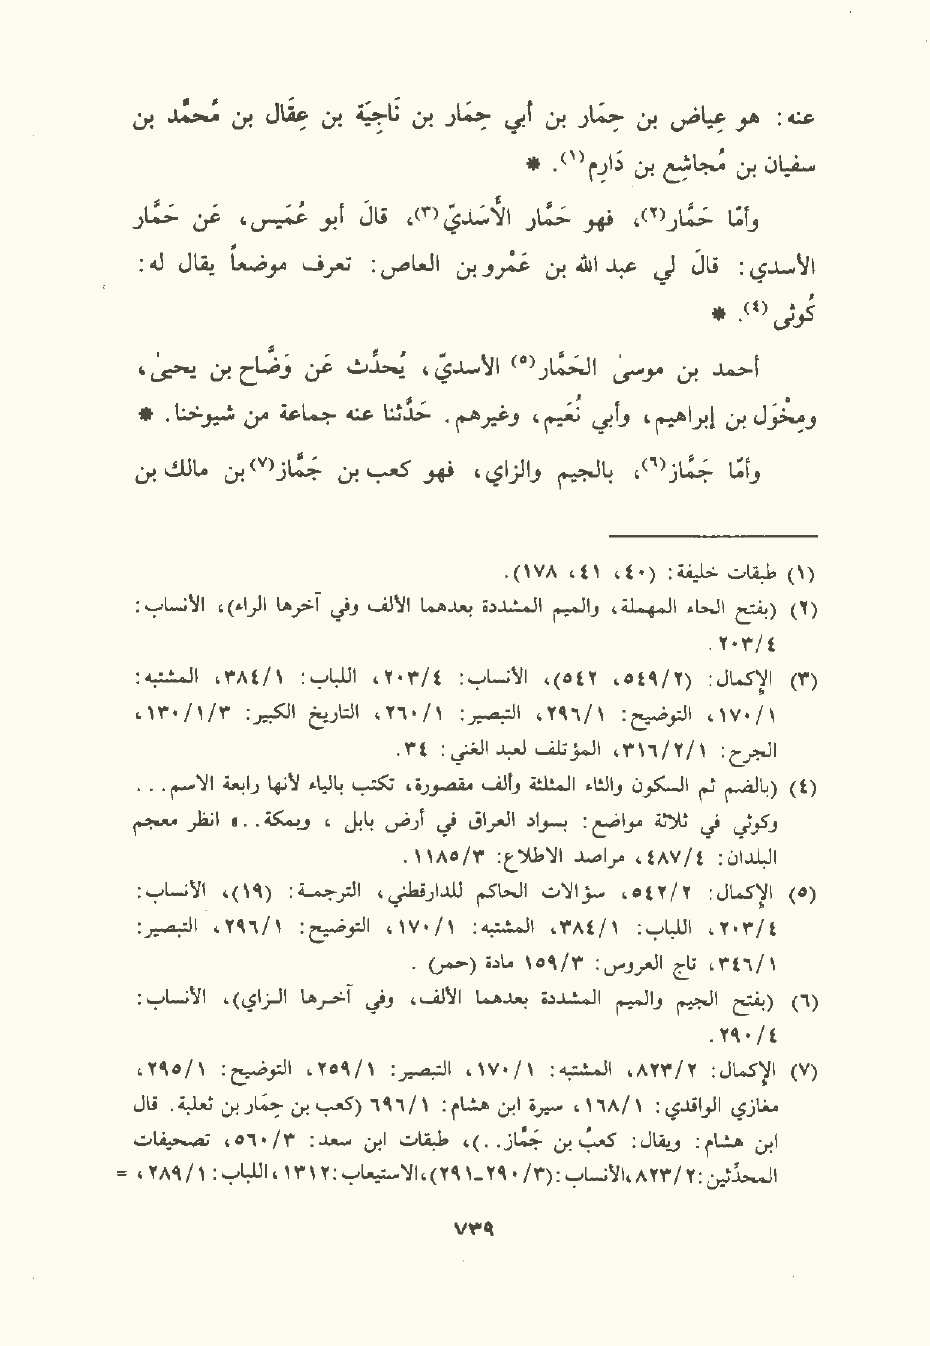 عنه: هو عِياض بن حِمَار بن أبي حِمَار بن نَاجِيَة بن عِقَال بن مُحمَّد بن
سفيان بن مُجاشِع بن دَارِم(١). *
وأمّا حَمَّار(٢)، فهو حَمَّار الأَسَديّ(٣)، قالَ أبو عُمَيس، عَن حَمَّار
الأسدي: قالَ لي عبد الله بن عَمْرو بن العاص: تعرف موضعاً يقال له:
كُوثى(٤). *
أحمد بن موسىٰ الحَمَّار(٥) الأسديّ، يُحدِّث عَن وَضَّاح بن يحيىٰ،
ومِخْوَل بن إبراهيم، وأبي نُعَيم، وغيرهم. حَدثنا عنه جماعة من شيوخنا. *
وأمّا جَمَّاز(٦)، بالجيم والزاي، فهو كعب بن جَمَّاز(٧) بن مالك بن
(١) طبقات خليفة: (٤٠، ٤١، ١٧٨).
(٢) (بفتح الحاء المهملة، والميم المشددة بعدهما الألف وفي آخرها الراء)، الأنساب:
٢٠٣/٤.
(٣) الإكمال: (٥٤٩/٢، ٥٤٢)، الأنساب: ٢٠٣/٤، اللباب: ٣٨٤/١، المشتبه:
١٧٠/١، التوضيح: ٢٩٦/١، التبصير: ٢٦٠/١، التاريخ الكبير: ١٣٠/١/٣،
الجرح: ٣١٦/٢/١، المؤتلف لعبد الغني: ٣٤.
(٤) (بالضم ثم السكون والثاء المثلثة وألف مقصورة، تكتب بالياء لأنها رابعة الاسم...
وكوثي في ثلاثة مواضع: بسواد العراق في أرض بابل، وبمكة..» انظر معجم
البلدان: ٤٨٧/٤، مراصد الاطلاع: ١١٨٥/٣.
(٥) الإكمال: ٥٤٢/٢، سؤالات الحاكم للدارقطني، الترجمة: (١٩)، الأنساب:
٢٠٣/٤، اللباب: ٣٨٤/١، المشتبه: ١٧٠/١، التوضيح: ٢٩٦/١، التبصير:
٣٤٦/١، تاج العروس: ١٥٩/٣ مادة (حمر).
(٦) (بفتح الجيم والميم المشددة بعدهما الألف، وفي آخرها الزاي)، الأنساب:
٢٩٠/٤.
(٧) الإكمال: ٨٢٣/٢، المشتبه: ١٧٠/١، التبصير: ٢٥٩/١، التوضيح: ٢٩٥/١،
مغازي الواقدي: ١٦٨/١، سيرة ابن هشام: ٦٩٦/١ (كعب بن حِمَار بن ثعلبة. قال
ابن هشام: ويقال: كعبُ بن جَمَّاز..)، طبقات ابن سعد: ٥٦٠/٣، تصحيفات
المحدِّثين: ٨٢٣/٢، الأنساب: (٢٩٠/٣-٢٩١)، الاستيعاب: ١٣١٢، اللباب: ٢٨٩/١، =
٧٣٩